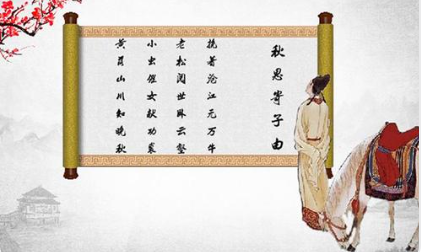 秋思寄子由
挽著沧江无万牛
老松阅世卧云壑
小虫催女献功裘
黄落山川知晚秋